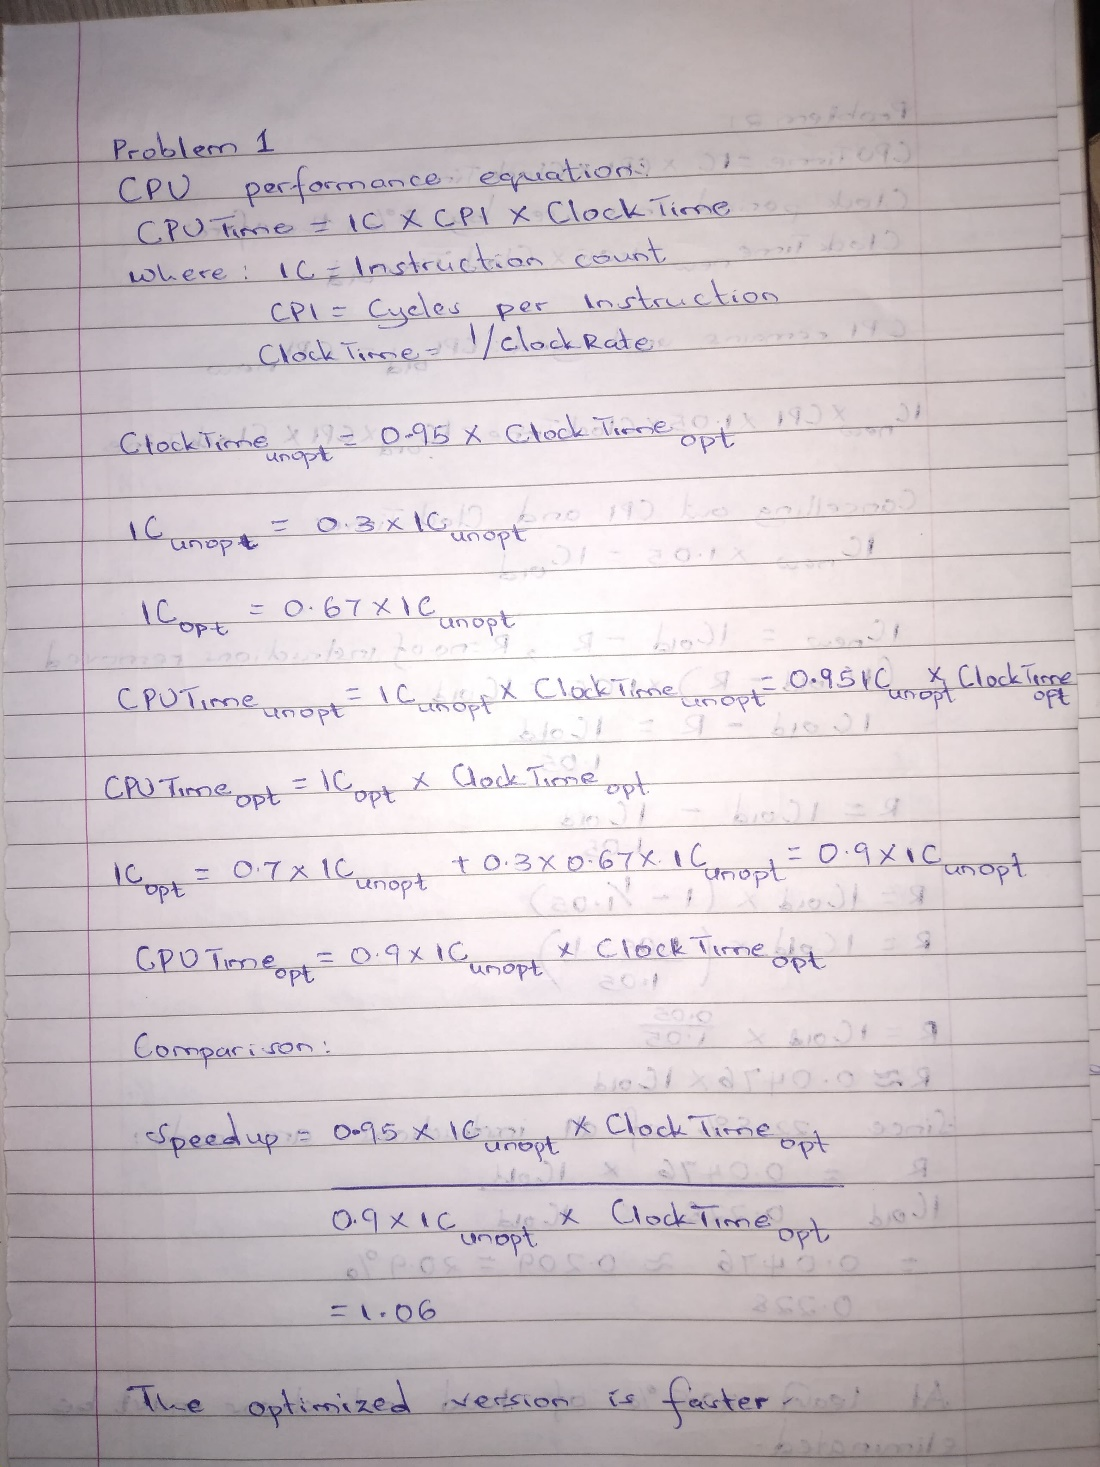 Problem 1
CPU performance equation:
CPU Time = IC X CPI X Clock Time
where: IC = Instruction count
CPI = Cycles per Instruction
Clock Time = 1/Clock Rate
Clock Time unopt = 0.95 x Clock Time opt
IC unopt = 0.3 x IC unopt
IC opt = 0.67 x IC unopt
CPU Time unopt = IC unopt x Clock Time unopt = 0.95 IC unopt x Clock Time opt
CPU Time opt = IC opt x Clock Time opt
IC opt = 0.7 x IC unopt + 0.3 x 0.67 x IC unopt = 0.9 x IC unopt
CPU Time opt = 0.9 x IC unopt x Clock Time opt
Comparison:
Speedup = 0.95 x IC unopt x Clock Time opt
0.9 x IC unopt x Clock Time opt
= 1.06
The optimized version is faster.